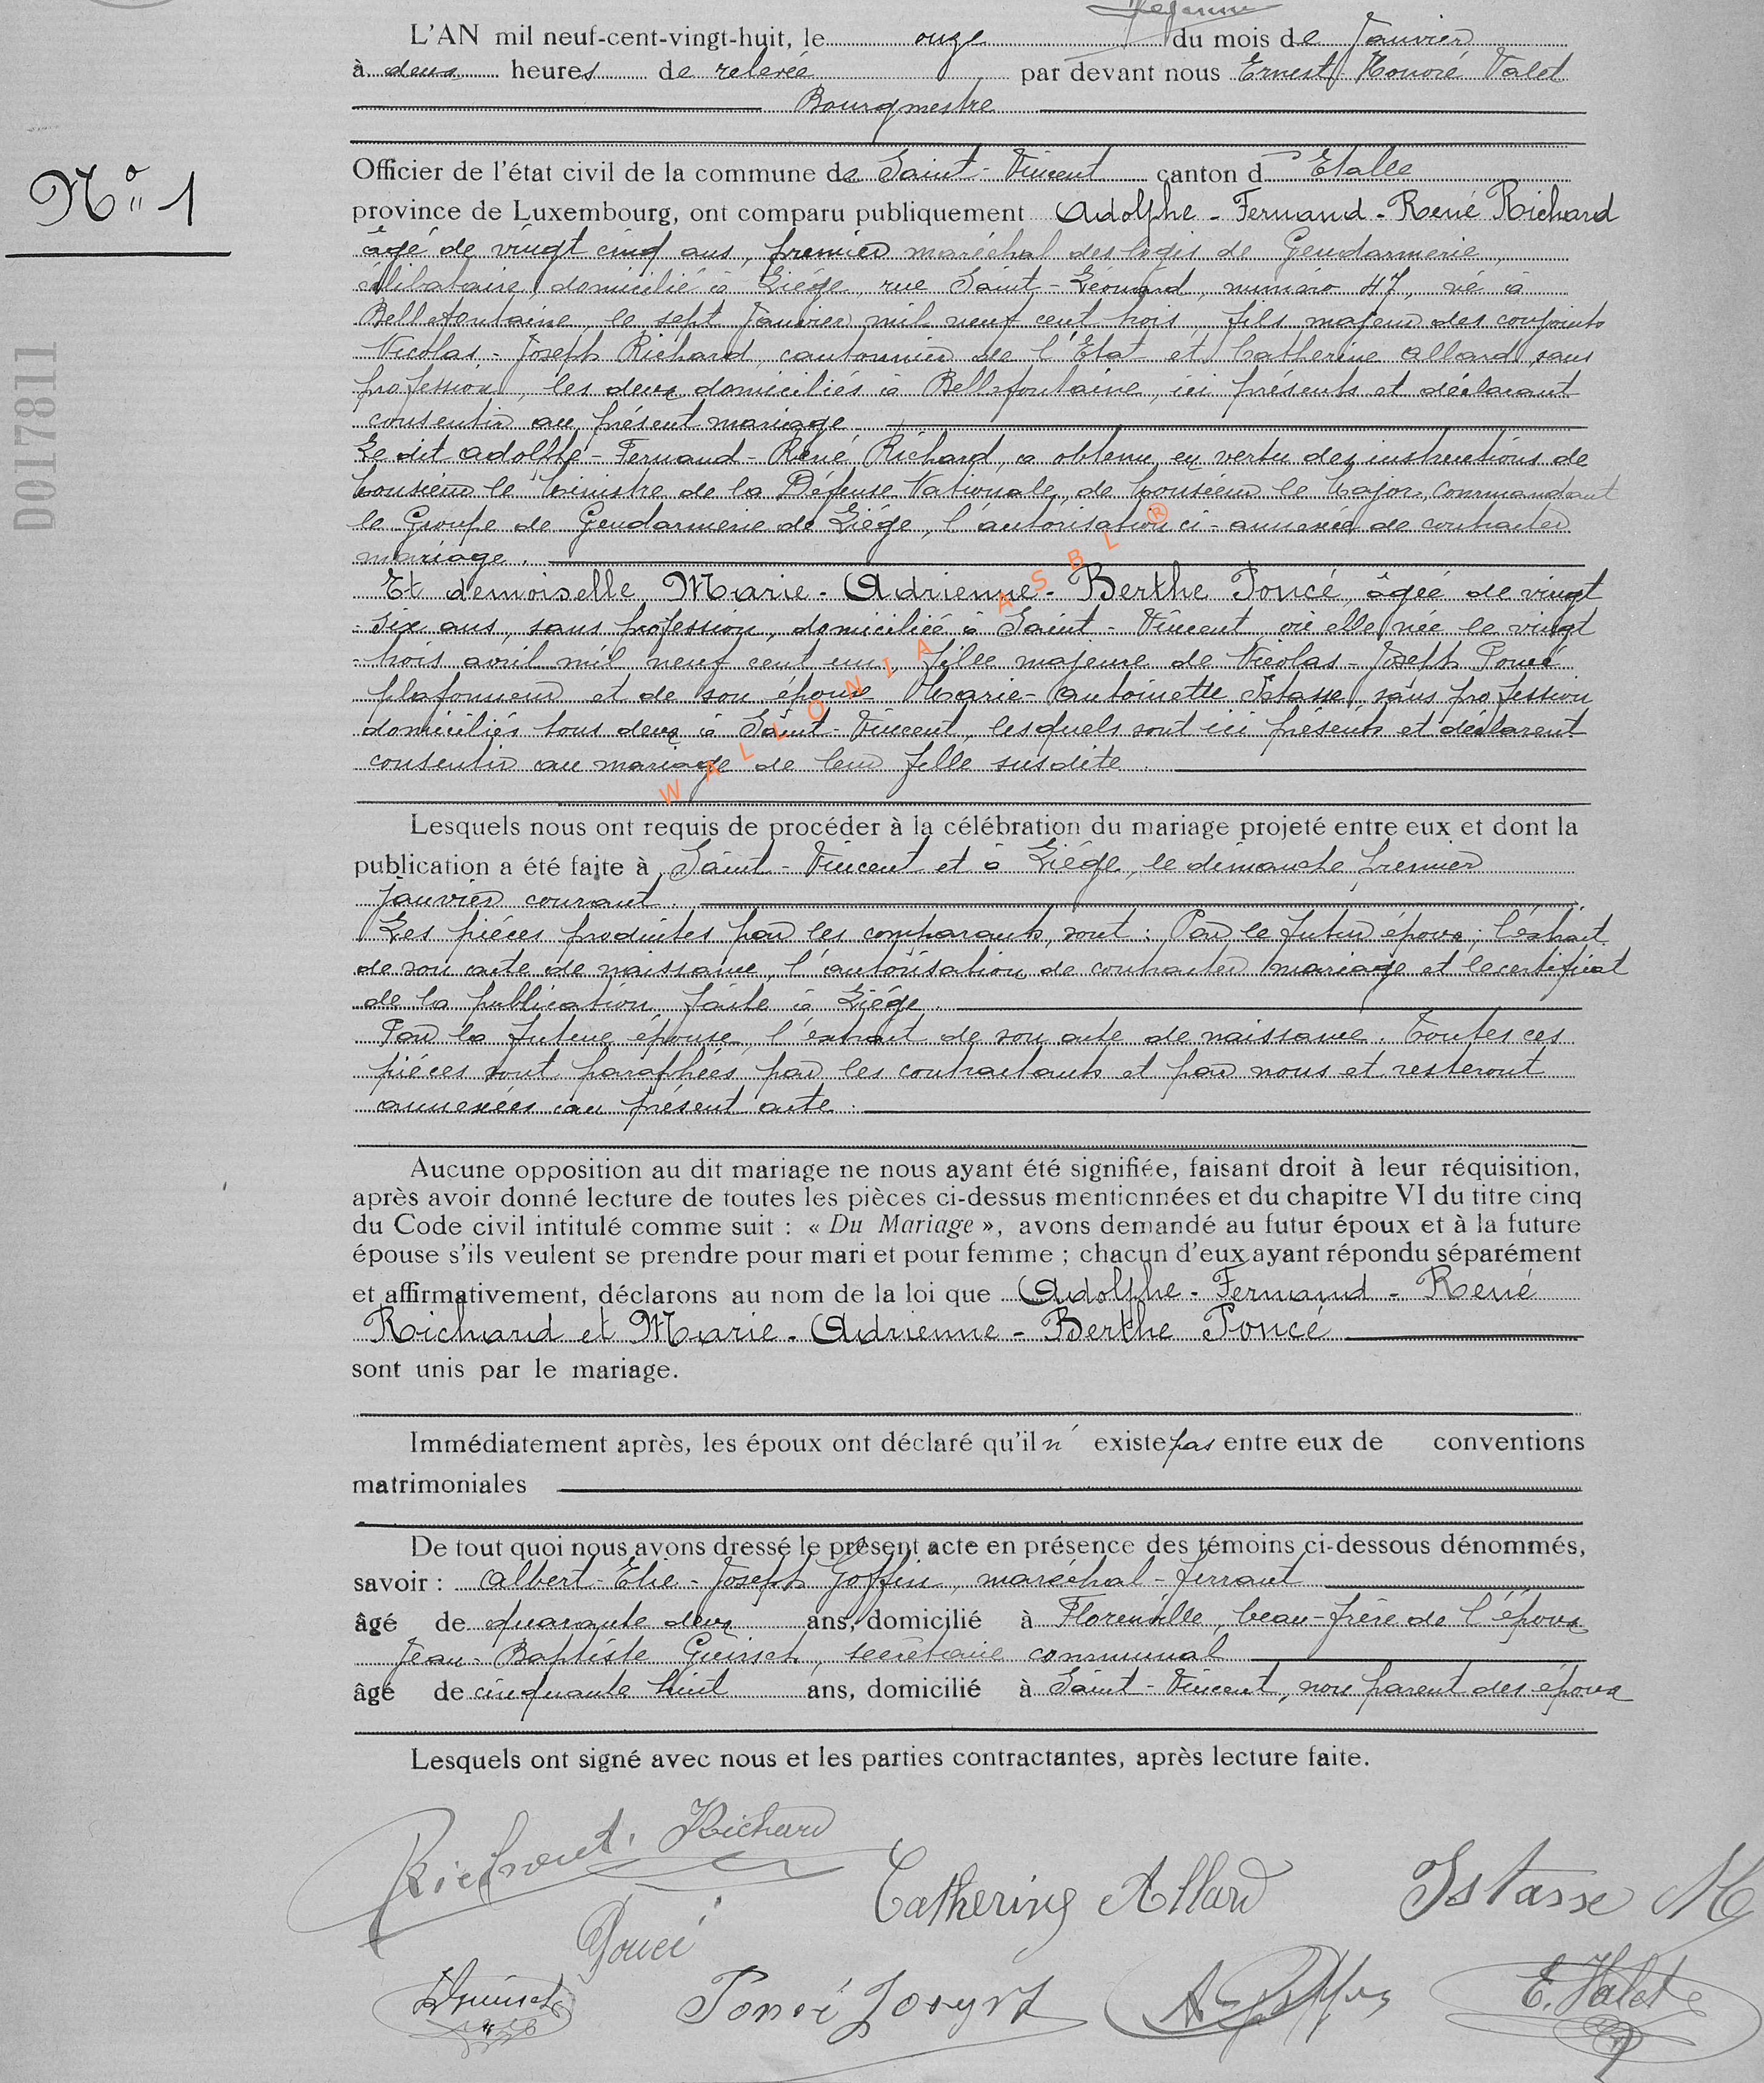 L'AN mil neuf-cent-vingt-huit, le onze du mois de Janvier
à deux heures de relevée par devant nous Ernest Honoré Valet
Bourgmestre
N° 1
Officier de l'état civil de la commune de Saint-Vincent canton d'Etalle
province de Luxembourg, ont comparu publiquement Adolphe-Fernand-René Richard
âgé de vingt cinq ans, premier maréchal des logis de Gendarmerie,
célibataire, domicilié à Liége, rue Saint-Léonard, numéro 47, né à
Bellefontaine, le sept Janvier mil neuf cent trois, fils majeur des conjoints
Nicolas-Joseph Richard, cantonnier de l'Etat et Catherine Allard, sans
profession, les deux domiciliés à Bellefontaine, ici présents et déclarant
consentir au présent mariage.
Le dit Adolphe-Fernand-René Richard, a obtenu, en vertu des instructions de
Monsieur le Ministre de la Défense Nationale, de Monsieur le Major, commandant
le Groupe de Gendarmerie de Liége, l'autorisation ci-annexée de contracter
mariage.
Et demoiselle Marie-Adrienne-Berthe Poncé, âgée de vingt
-six ans, sans profession, domiciliée à Saint-Vincent, où elle née le vingt
-trois avril mil neuf cent un, fille majeure de Nicolas-Joseph Poncé
plafonneur et de son épouse Marie-Antoinette Istasse, sans profession
domiciliés tous deux à Saint-Vincent, lesquels sont ici présents et déclarent
consentir au mariage de leur fille susdite.
WALLONIA ASBL ®
D017811
Lesquels nous ont requis de procéder à la célébration du mariage projeté entre eux et dont la
publication a été faite à Saint-Vincent et à Liége, le dimanche premier
Janvier courant.
Les pièces produites par les comparants, sont : Par le futur époux ; l'extrait
de son acte de naissance, l'autorisation de contracter mariage et le certificat
de la publication faite à Liége.
Par la future épouse, l'extrait de son acte de naissance. Toutes ces
pièces sont paraphées par les contractants et par nous et resteront
annexées au présent acte.
Aucune opposition au dit mariage ne nous ayant été signifiée, faisant droit à leur réquisition,
après avoir donné lecture de toutes les pièces ci-dessus mentionnées et du chapitre VI du titre cinq
du Code civil intitulé comme suit : « Du Mariage », avons demandé au futur époux et à la future
épouse s'ils veulent se prendre pour mari et pour femme ; chacun d'eux ayant répondu séparément
et affirmativement, déclarons au nom de la loi que Adolphe-Fernand-René
Richard et Marie-Adrienne-Berthe Poncé
sont unis par le mariage.
Immédiatement après, les époux ont déclaré qu'il n'existe pas entre eux de conventions
matrimoniales
De tout quoi nous avons dressé le présent acte en présence des témoins ci-dessous dénommés,
savoir : Albert-Elie-Joseph Goffin, maréchal-ferrant
âgé de quarante deux ans, domicilié à Florenville, beau-frère de l'époux
Jean-Baptiste Greisch, secrétaire communal
âgé de cinquante huit ans, domicilié à Saint-Vincent, non parent des époux
Lesquels ont signé avec nous et les parties contractantes, après lecture faite.
Richard Richard
Catherine Allard Istasse M
Poncé
Poncé Joseph E. Valet